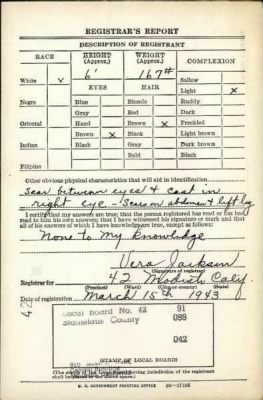 REGISTRAR'S REPORT
DESCRIPTION OF REGISTRANT
RACE HEIGHT (Approx.) WEIGHT (Approx.) COMPLEXION
6' 167# Sallow
White ✓ EYES HAIR Light X
Negro Blue Blonde Ruddy
Gray Red Dark
Oriental Hazel Brown X Freckled
Brown X Black Light brown
Indian Black Gray Dark brown
Bald Black
Filipino
Other obvious physical characteristics that will aid in identification
Scar between eyes & cast in
right eye - Scars on abdomen & left leg
I certify that my answers are true; that the person registered has read or has had
read to him his own answers; that I have witnessed his signature or mark and that
all of his answers of which I have knowledge are true, except as follows:
None to my knowledge
Vera Jackson
(Signature of registrar)
Registrar for 42 Modesto Calif
(Precinct) (Ward) (City or county) (State)
Date of registration March 15th 1943
42
Local Board No. 42 91
Stanislaus County 099
042
(STAMP OF LOCAL BOARD)
(The stamp of the Local Board having jurisdiction of the registrant
shall be placed in the above space.)
U. S. GOVERNMENT PRINTING OFFICE 16-17105